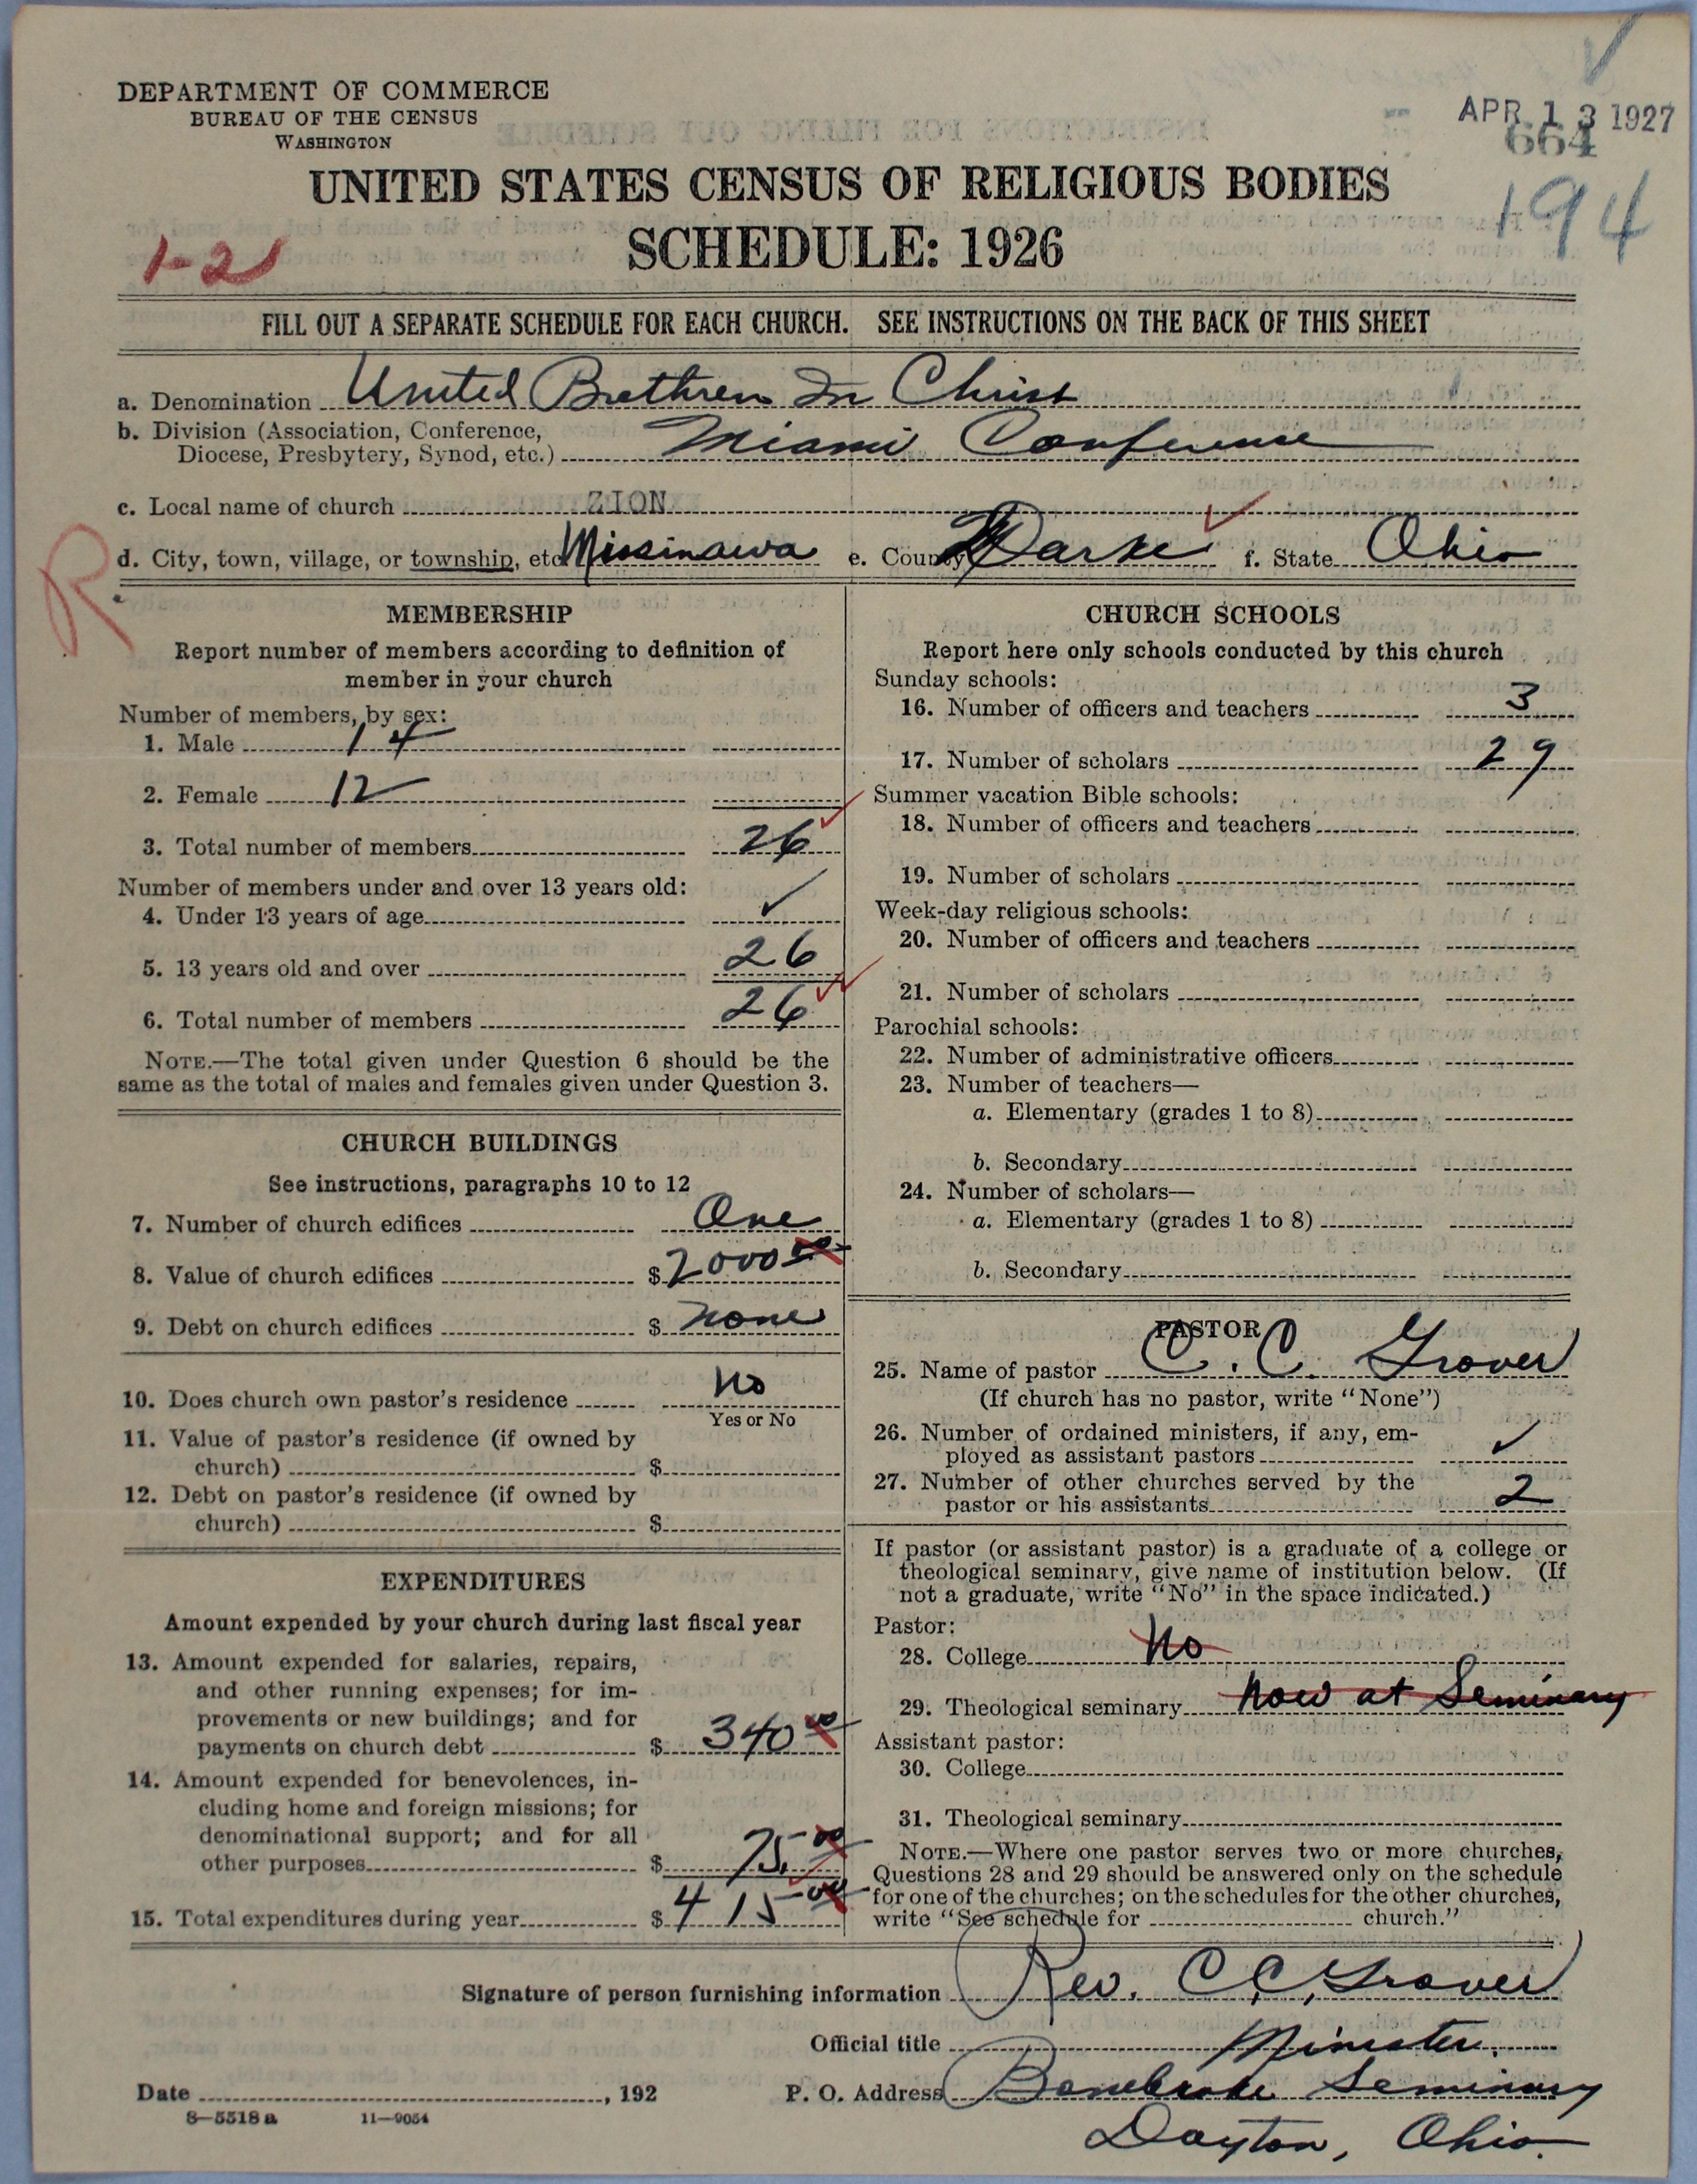 DEPARTMENT OF COMMERCE
BUREAU OF THE CENSUS
WASHINGTON
APR 13 1927
664
194
UNITED STATES CENSUS OF RELIGIOUS BODIES
SCHEDULE: 1926
1-21
FILL OUT A SEPARATE SCHEDULE FOR EACH CHURCH. SEE INSTRUCTIONS ON THE BACK OF THIS SHEET
a. Denomination United Brethren In Christ
b. Division (Association, Conference,
Diocese, Presbytery, Synod, etc.) Miami Conference
c. Local name of church ZION
R
d. City, town, village, or township, etc Missinawa e. County Darke f. State Ohio
MEMBERSHIP
Report number of members according to definition of
member in your church
Number of members, by sex:
1. Male 14
2. Female 12
3. Total number of members 26
Number of members under and over 13 years old:
4. Under 13 years of age ✓
5. 13 years old and over 26
6. Total number of members 26
NOTE.—The total given under Question 6 should be the
same as the total of males and females given under Question 3.
CHURCH BUILDINGS
See instructions, paragraphs 10 to 12
7. Number of church edifices One
8. Value of church edifices $ 2000 00
9. Debt on church edifices $ none
10. Does church own pastor's residence No
Yes or No
11. Value of pastor's residence (if owned by
church) $
12. Debt on pastor's residence (if owned by
church) $
EXPENDITURES
Amount expended by your church during last fiscal year
13. Amount expended for salaries, repairs,
and other running expenses; for im-
provements or new buildings; and for
payments on church debt $ 340 00
14. Amount expended for benevolences, in-
cluding home and foreign missions; for
denominational support; and for all
other purposes $ 75.00
15. Total expenditures during year $ 415 00
CHURCH SCHOOLS
Report here only schools conducted by this church
Sunday schools:
16. Number of officers and teachers 3
17. Number of scholars 29
Summer vacation Bible schools:
18. Number of officers and teachers
19. Number of scholars
Week-day religious schools:
20. Number of officers and teachers
21. Number of scholars
Parochial schools:
22. Number of administrative officers
23. Number of teachers—
a. Elementary (grades 1 to 8)
b. Secondary
24. Number of scholars—
a. Elementary (grades 1 to 8)
b. Secondary
PASTOR
25. Name of pastor C. C. Grover
(If church has no pastor, write "None")
26. Number of ordained ministers, if any, em-
ployed as assistant pastors ✓
27. Number of other churches served by the
pastor or his assistants 2
If pastor (or assistant pastor) is a graduate of a college or
theological seminary, give name of institution below. (If
not a graduate, write "No" in the space indicated.)
Pastor:
28. College No
29. Theological seminary Now at Seminary
Assistant pastor:
30. College
31. Theological seminary
NOTE.—Where one pastor serves two or more churches,
Questions 28 and 29 should be answered only on the schedule
for one of the churches; on the schedules for the other churches,
write "See schedule for church."
Signature of person furnishing information Rev. C. C. Grover
Official title Minister.
Date , 192 P. O. Address Bonebrake Seminary
8—5518 a 11—9054
Dayton, Ohio.